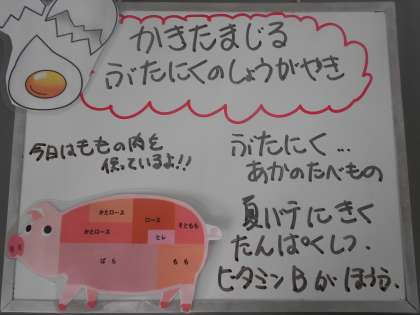 かきたまじる
ぶたにくのしょうがやき
今日はももの肉を
使っているよ!!
ぶたにく…
あかのたべもの
夏バテにきく
たんぱくしつ、
ビタミンBがほうふ。
かたロース
ロース
そともも
かたロース
ヒレ
ばら
もも